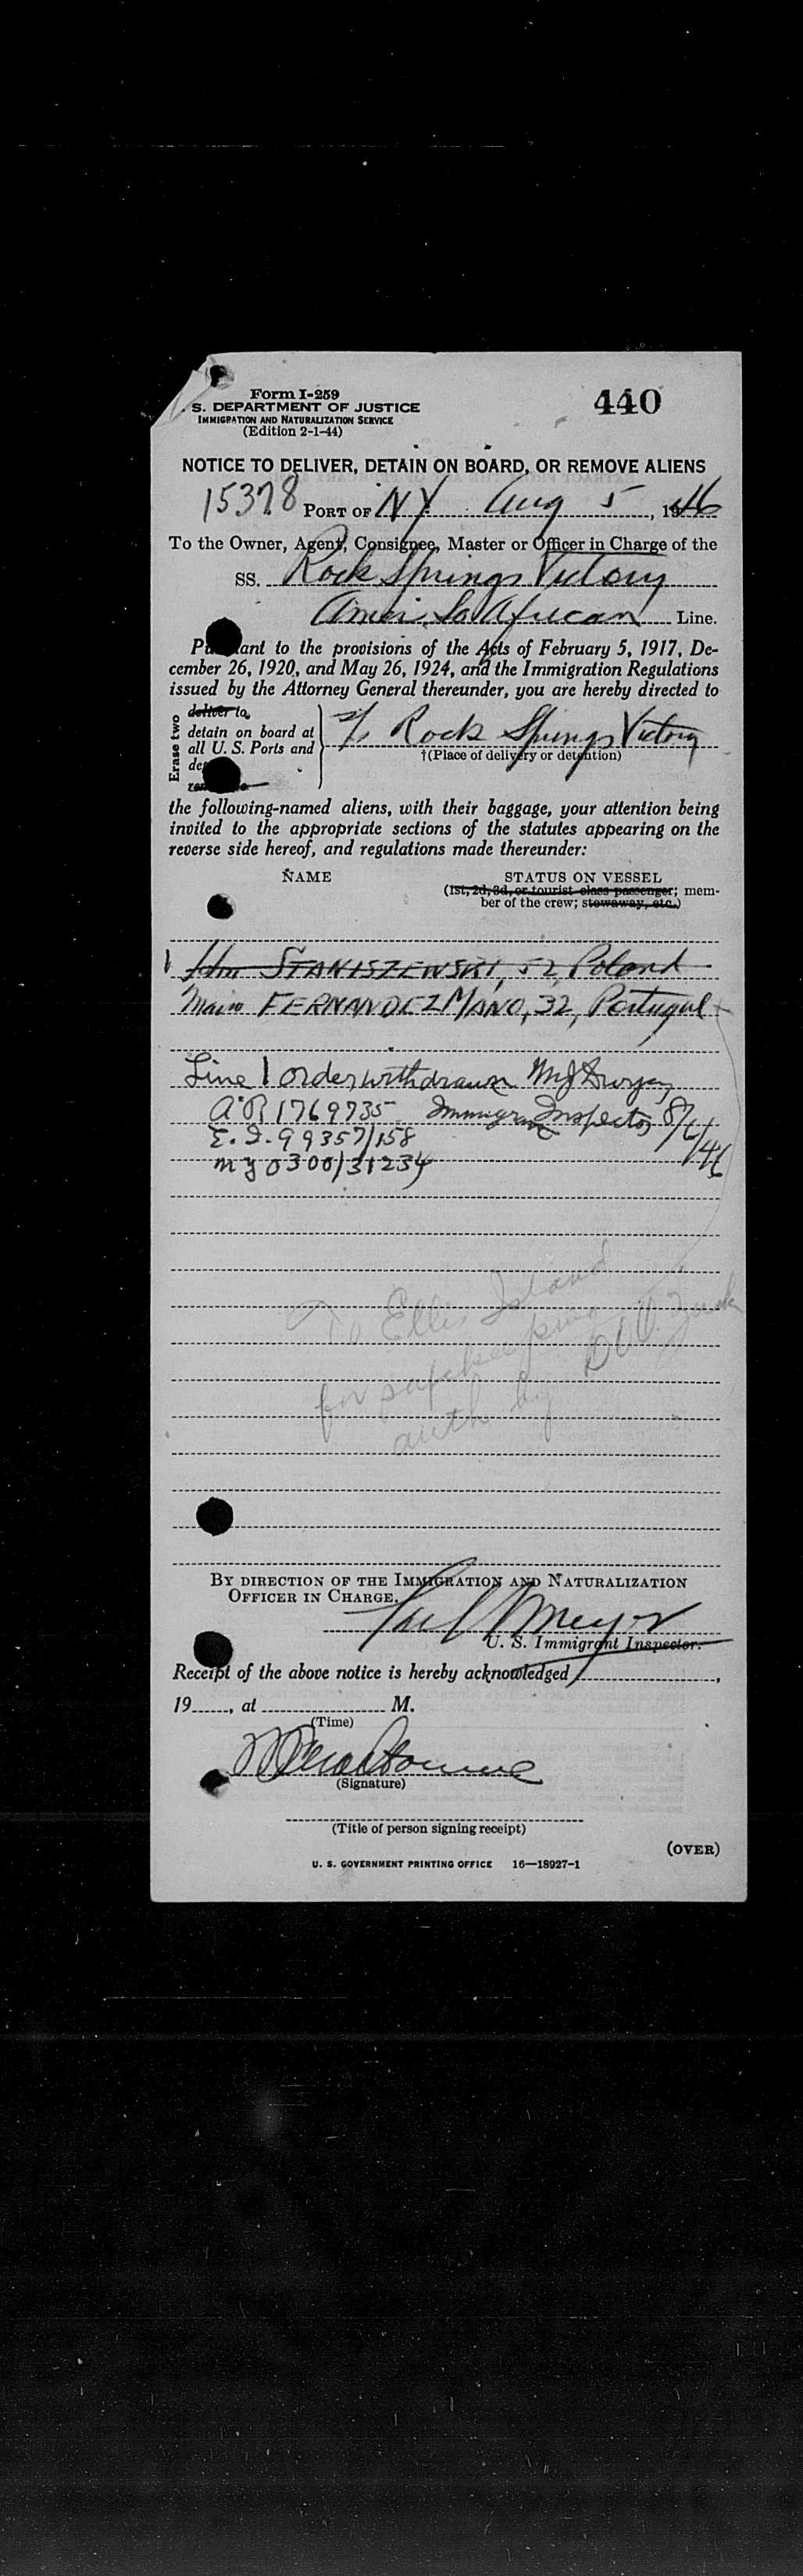 Form I-259
440
. S. DEPARTMENT OF JUSTICE
IMMIGRATION AND NATURALIZATION SERVICE
(Edition 2-1-44)
NOTICE TO DELIVER, DETAIN ON BOARD, OR REMOVE ALIENS
15378 PORT OF NY Aug 5, 1946
To the Owner, Agent, Consignee, Master or Officer in Charge of the
SS. Rock Springs Victory
Amer. So African Line.
P ant to the provisions of the Acts of February 5, 1917, De-
cember 26, 1920, and May 26, 1924, and the Immigration Regulations
issued by the Attorney General thereunder, you are hereby directed to
Erase two
deliver to,
detain on board at
all U. S. Ports and
de
Rock Springs Victory
†(Place of delivery or detention)
the following-named aliens, with their baggage, your attention being
invited to the appropriate sections of the statutes appearing on the
reverse side hereof, and regulations made thereunder:
NAME STATUS ON VESSEL
(1st, 2d, 3d, or tourist class passenger; mem-
ber of the crew; stowaway, etc.)
1 John STANISZEWSKI, 52, Poland
FERNANDEZ MANO, 32, Portugal
Line 1 order withdrawn
AR 1769735 Immigrant Inspector 8/6/46
E.I. 99357/158
my 0300/31234
To Ellis Island
for safekeeping
auth by
BY DIRECTION OF THE IMMIGRATION AND NATURALIZATION
OFFICER IN CHARGE.
Meyer
U. S. Immigrant Inspector.
Receipt of the above notice is hereby acknowledged ,
19 , at M.
(Time)
(Signature)
(Title of person signing receipt)
(OVER)
U. S. GOVERNMENT PRINTING OFFICE 16—18927-1